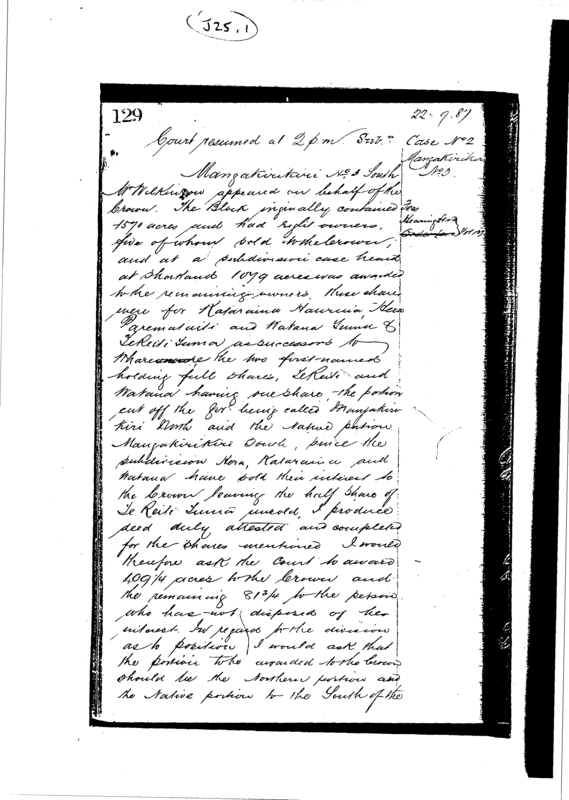 J25.1
129
22-9-87
Court resumed at 2 p.m.
Case No 2
Mangakirikiri
No 3.
Mangakirikiri No 3 South
Mr Wilkinson appeared on behalf of the
Crown. The Block originally contained
1571 acres and had eight owners,
five of whom sold to the Crown,
and at a subdivision case heard
at Shortland 1079 acres was awarded
to the remaining owners, these shares
were for Kataraina Hauruia, Hera
and Watana Tuma &
Te Reiti Tuma as successors to
the two first-named
holding full shares, Te Reiti and
Watana having one share, the portion
cut off the Govt being called Mangakiri
kiri North and the Native portion
Mangakirikiri South, since the
subdivision Hera, Kataraina and
Watana have sold their interest to
the Crown leaving the half share of
Te Reiti Tuma unsold. I produce
deed duly attested and completed
for the shares mentioned I would
therefore ask the Court to award
acres to the Crown and
the remaining 81 3/4 to the person
who has not disposed of her
interest. In regard to the division
as to position I would ask that
the portion to be awarded to the Crown
should be the Northern portion and
the Native portion to the South of the
Fees
Hearing